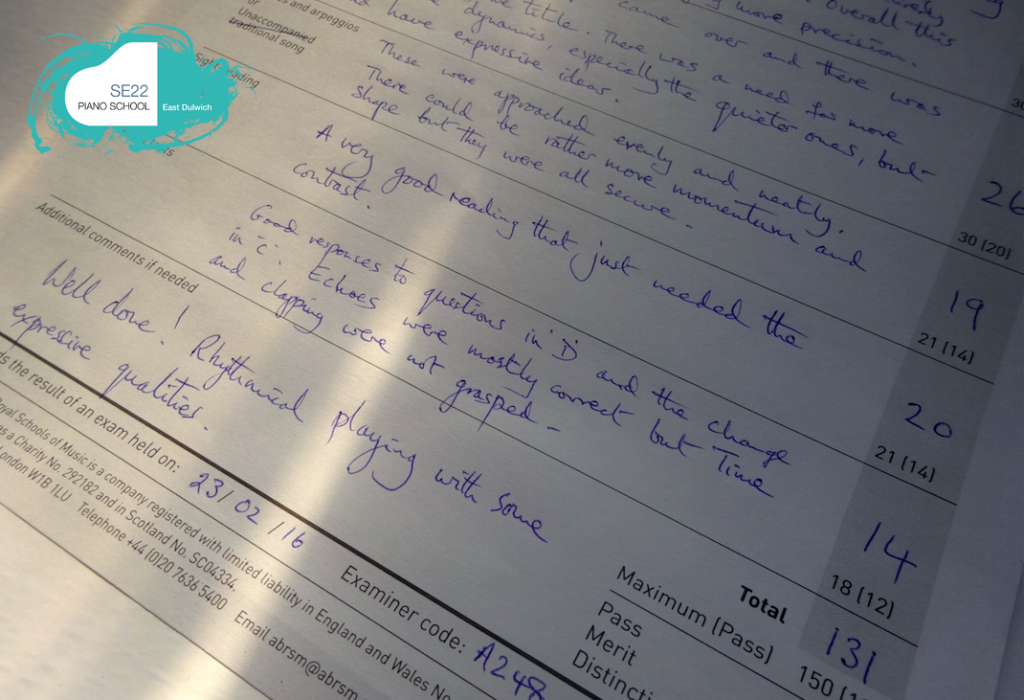 SE22
PIANO SCHOOL
East Dulwich
and arpeggios
or
Unaccompanied
traditional song
title. There was a need for more
came over and there was
more precision.
Overall this
dynamics, especially the quieter ones, but
have expressive ideas.
26
30 (20)
These were approached evenly and neatly.
There could be rather more momentum and
shape but they were all secure.
19
21 (14)
A very good reading that just needed the
contrast.
20
21 (14)
Good responses to questions in 'D' and the change
in 'C'. Echoes were mostly correct but Time
and clapping were not grasped.
14
18 (12)
Additional comments if needed
Well done! Rhythmical playing with some
expressive qualities.
Total
131
Maximum (Pass)
150
Pass
Merit
the result of an exam held on:
23/02/16
Examiner code:
A248
Schools of Music is a company registered with limited liability in England and Wales
a Charity No. 292182 and in Scotland No. SC04334.
London W1B 1LU Telephone +44 (0)20 7636 5400 Email abrsm@abrsm